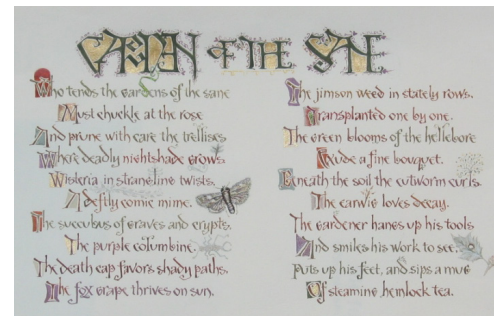 GARDEN OF THE SANE
Who tends the gardens of the sane
Must chuckle at the rose
And prune with care the trellises
Where deadly nightshade grows.
Wisteria in strangling twists.
A deftly comic mime.
The succubus of graves and crypts.
The purple columbine.
The death cap favors shady paths.
The fox grape thrives on sun.
The jimson weed in stately rows.
Transplanted one by one.
The green blooms of the hellebore
Exude a fine bouquet.
Beneath the soil the cutworm curls.
The earwig loves decay.
The gardener hangs up his tools
And smiles his work to see.
Puts up his feet, and sips a mug
Of steaming hemlock tea.